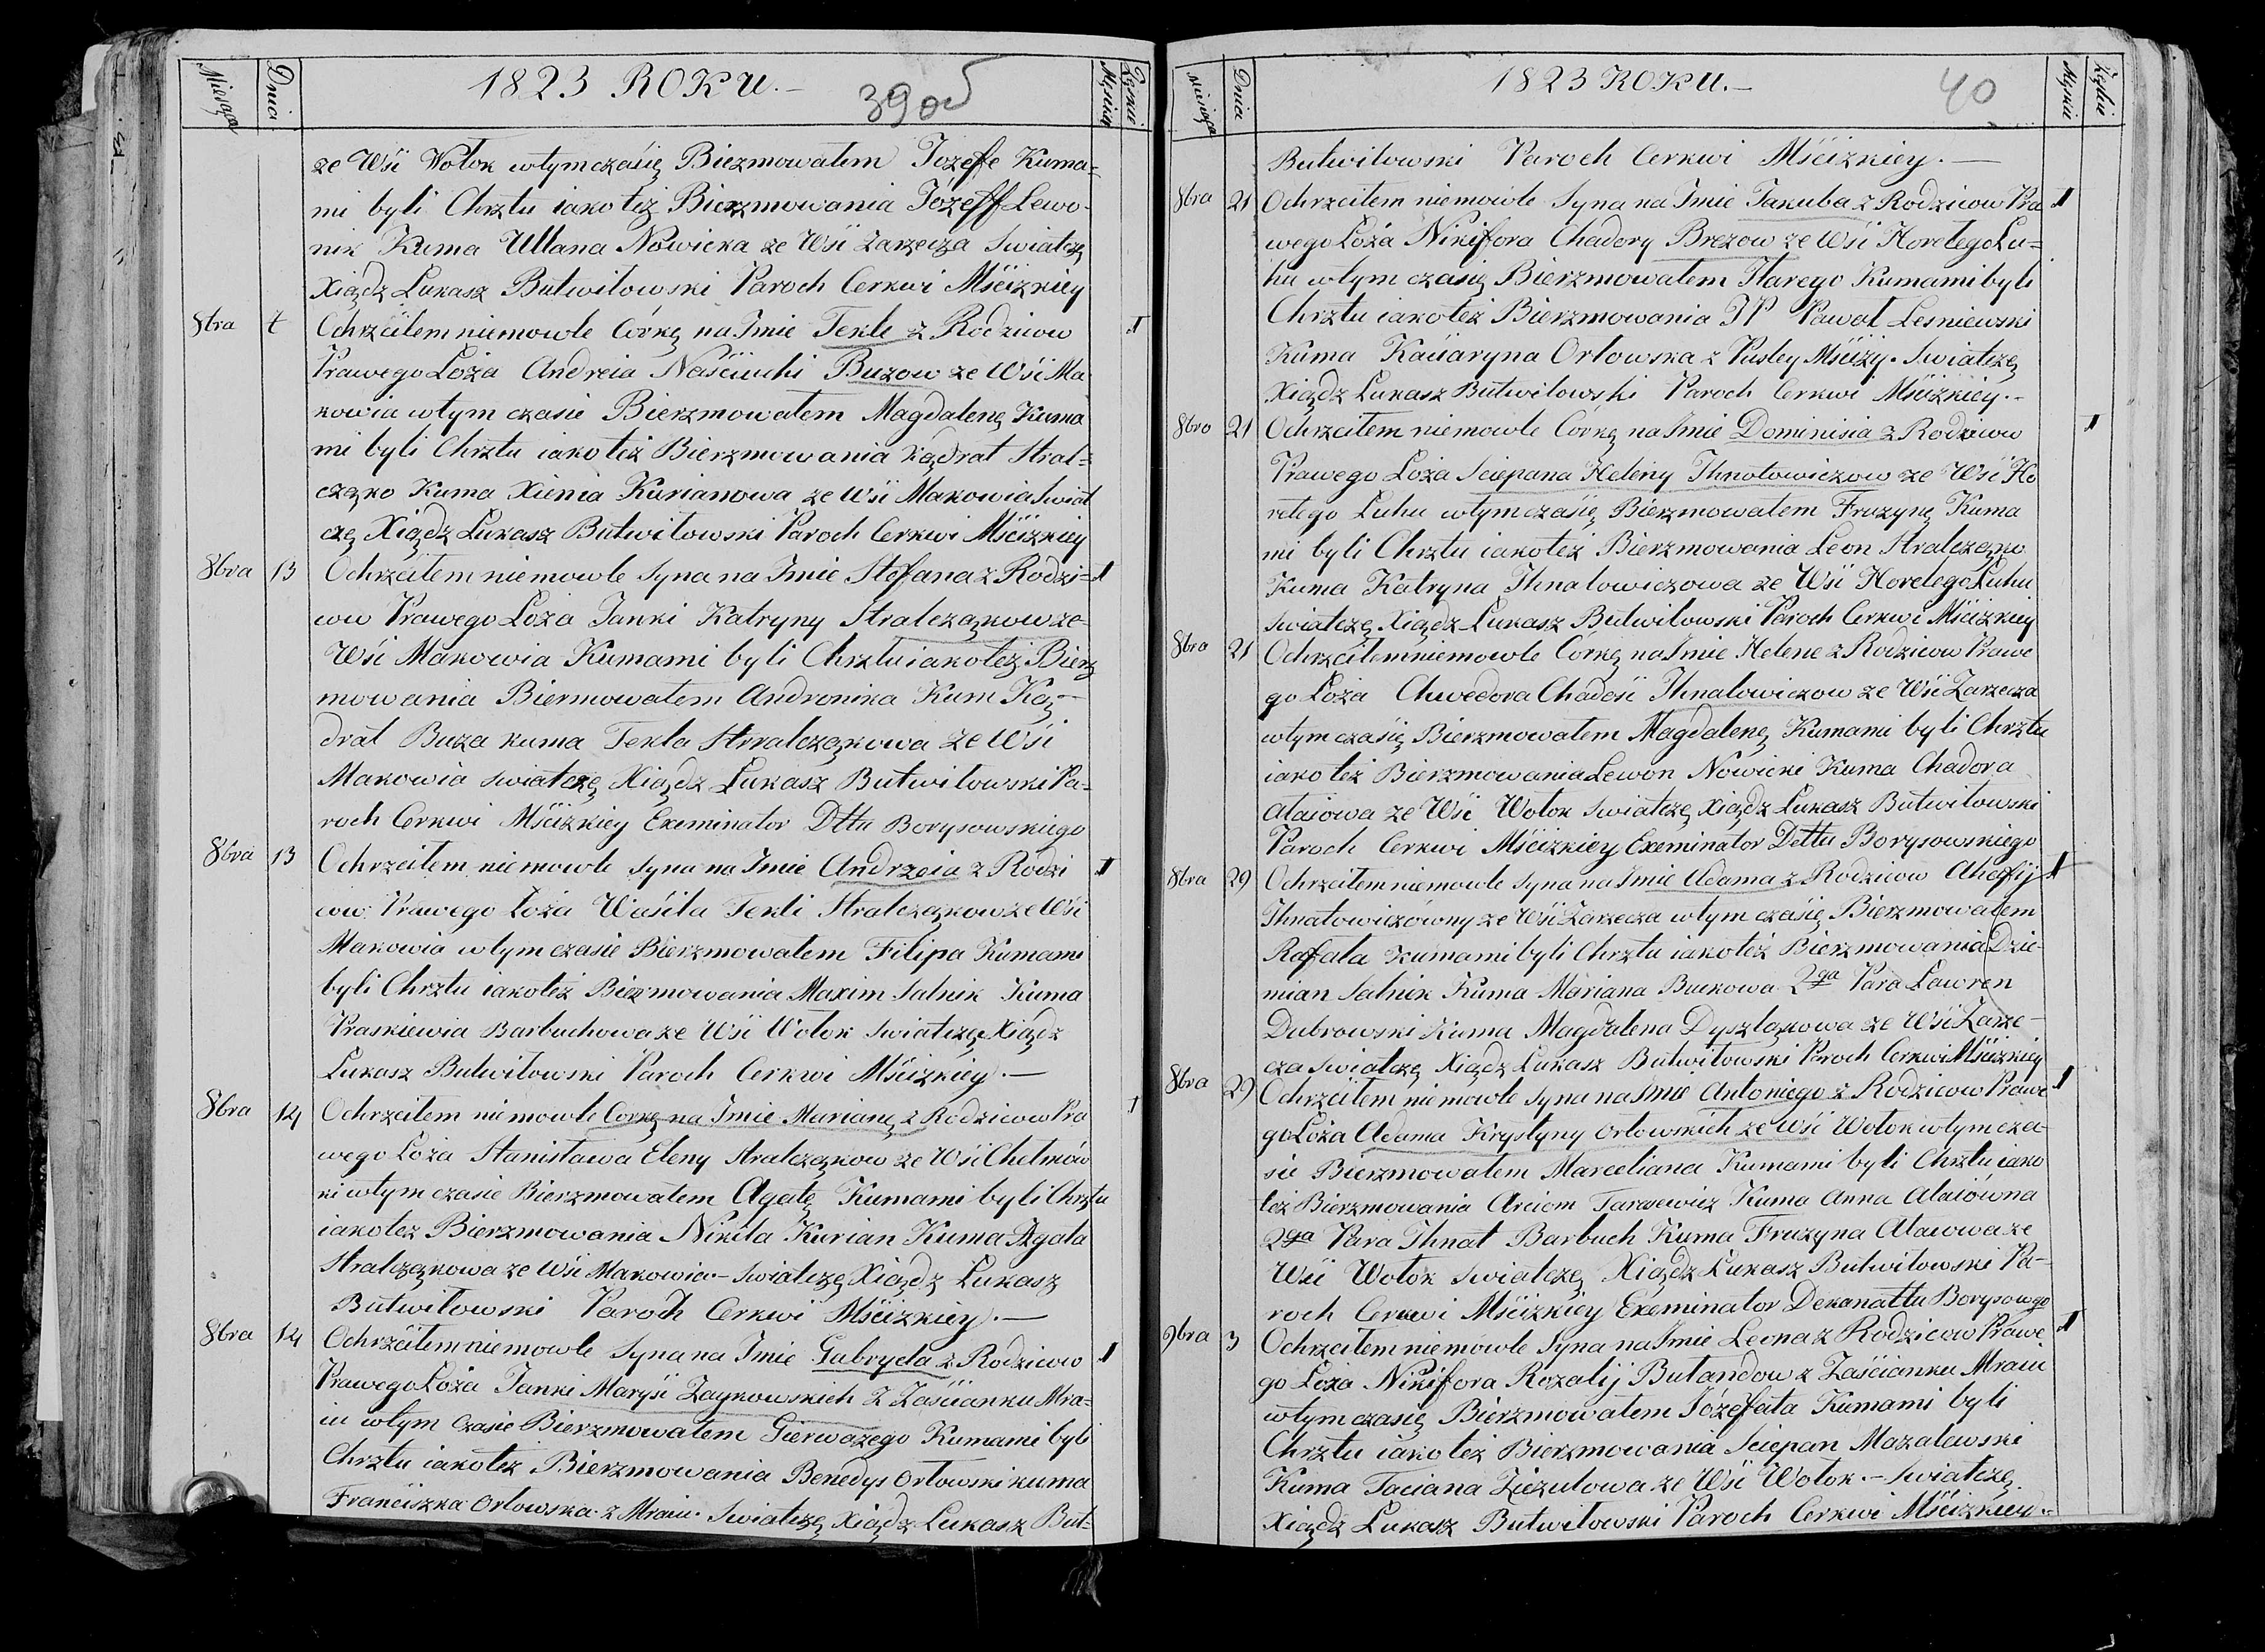 Miesiąca Dnia 1823 ROKU.– 39 об Męskie Żęńskie
ze Wśi Wołok wtymczaśię Bierzmowałem Jozefe Kuma-
mi byli Chrztu iakoteż Bierzmowania Józeff Lewo-
nik Kuma Ullana Nowicka ze Wśi Zarzecza Swiatczę
Xiądz Łukasz Butwiłowski Paroch Cerkwi Mśćizkiey
8bra Ochrzciłem niemowle Córkę na Jmie Tekle z Rodzicow
Prawego Łoża Andreia Naśćiuchi Buzow ze Wśi Ma-
kowia wtym czasie Bierzmowałem Magdalenę Kuma
mi byli Chrztu iakoteż Bierzmowania Kądrat Stral-
częko Kuma Xienia Kurianowa ze Wśi Makowia Swiat
czę Xiądz Łukasz Butwiłowski Paroch Cerkwi Mśćizkiey
8bra 13 Ochrzciłem niemowle Syna na Jmie Stefana z Rodzi-
cow Prawego Łoża Janki Katryny Stralczękow ze
Wśi Makowia Kumami byli Chrztu iakoteż Bierz
mowania Biermowałem Andronika Kum Ką-
drat Buza kuma Tekla Strralczękowa ze Wśi
Makowia swiatczę Xiądz Łukasz Butwiłowski Pa-
roch Cerkwi Mśćizkiey Exeminator Dttu Borysowskiego
8bra 13 Ochrzciłem niemowle Syna na Jmie Andrzeia z Rodzi
cow Prawego Łoża Waśila Tekli Stralczękow ze Wśi
Makowia wtym czasie Bierzmowałem Filipa Kumami
byli Chrztu iakoteż Bierzmowania Maxim Salnik Kuma
Praskiewia Barbuchowa ze Wśi Wołok Swiatczę Xiądz
Łukasz Butwiłowski Paroch Cerkwi Mśćizkiey.–
8bra 14 Ochrzciłem niemowle Corkę na Jmie Marianę z Rodzicow Pra
wego Łoża Stanisława Eleny Stralczękow ze Wśi Chełmów
ki wtym czasie Bierzmowałem Agatę Kumami byli Chrztu
iakoteż Bierzmowania Nikita Kurian Kuma Agata
Stralczękowa ze Wśi Makowia.– Swiatczę Xiądz Łukasz
Butwiłowski Paroch Cerkwi Mśćizkiey.–
8bra 14 Ochrzciłem niemowle Syna na Jmie Gabryela z Rodzicow
Prawego Łoża Janki Maryśi Zaykowskich z Zaśćianku Mra-
iu wtym Czasie Bierzmowałem Gierwazego Kumami byli
Chrztu iakoteż Bierzmowania Benedys Orłowski kuma
Franciszka Orłowska z Mraiu. Swiatczę Xiądz Łukasz But-
Miesiąca Dnia 1823 ROKU.– 40 Męskie
Butwiłowski Paroch Cerkwi Mśćizkiey.–
8bra 21 Ochrzciłem niemowle Syna na Jmie Jakuba z Rodzicow Pra
wego Łoża Nikifora Chadory Brezow ze Wśi Horełego Łu-
hu wtym czasię Bierzmowałem Harego Kumami byli
Chrztu iakoteż Bierzmowania JP Paweł Lesniewski
Kuma Orłowska z Pustey Mśćiży. Swiatczę
Xiądz Łukasz Butwiłowski Paroch Cerkwi Mśćizkiey.–
8bro 21 Ochrzciłem niemowle Córkę na Jmie Dominisia z Rodzicow
Prawego Łoża Sciepana Heleny Jhnatowiczow ze Wśi Ho
rełego Łuhu wtymczaśię Bierzmowałem Fruzynę Kuma
mi byli Chrztu iakoteż Bierzmowania Leon Stralczęko
Kuma Katryna Jhnatowiczowa ze Wśi Horełego Łuhu
Swiatczę Xiądz Łukasz Butwiłowski Paroch Cerkwi Mśćizkiey
8bra 21 Ochrzciłem niemowle Córkę na Jmie Helene z Rodzicow Prawe
go Łoża Chwedora Chadośi Jhnatowiczow ze Wśi Zarzecza
wtym czaśię Bierzmowałem Magdalenę Kumami byli Chrztu
iakoteż Bierzmowania Lewon Nowicki Kuma Chadora
Ataiowa ze Wśi Wołok Swiatczę Xiądz Łukasz Butwiłowski
Paroch Cerkwi Mśćizkiey Exeminator Dettu Borysowskiego
8bra 29 Ochrzciłem niemowle Syna na Jmie Adama z Rodzicow Ahafij
Jhnatowiczówny ze Wśi Zarzecza wtym czaśię Bierzmowałem
Rafała kumami byli Chrztu iakoteż Bierzmowania Dzie-
mian Salnik Kuma Mariana Buckowa 2ga Para Ławren
Dubrowski Kuma Magdalena Dyszlakowa ze Wśi Zarze-
cza Swiatczę Xiądz Łukasz Butwiłowski Paroch Cerkwi Mśćizkiey
8bra 29 Ochrzciłem niemowle Syna na Jmie Antoniego z Rodzicow Prawe
go Łoża Adama Krystyny Orłowskich ze Wśi Wołok wtym cza-
sie Bierzmowałem Marceliana Kumami byli Chrztu iako
też Bierzmowania Arciom Tarasewicz Kuma Anna Ataiówna
2ga Para Jhnat Barbuch Kuma Fruzyna Ataiowa ze
Wśi Wołok Swiatczę Xiądz Łukasz Butwiłowski Pa-
roch Cerkwi Mśćizkiey Exeminator Dekanattu Borysowgo
9bra 3 Ochrzciłem niemowle Syna na Jmie Leona z Rodzicow Prawe
go Łoża Nikifora Rozalij Butandow z Zaśćianku Mraiu
wtym czasię Bierzmowałem Józefata Kumami byli
Chrztu iakoteż Bierzmowania Sciepan Mazalewski
Kuma Taciana Ziezulowa ze Wśi Wołok.– Swiatczę
Xiądz Łukasz Butwiłowski Paroch Cerkwi Mśćizkiey.–